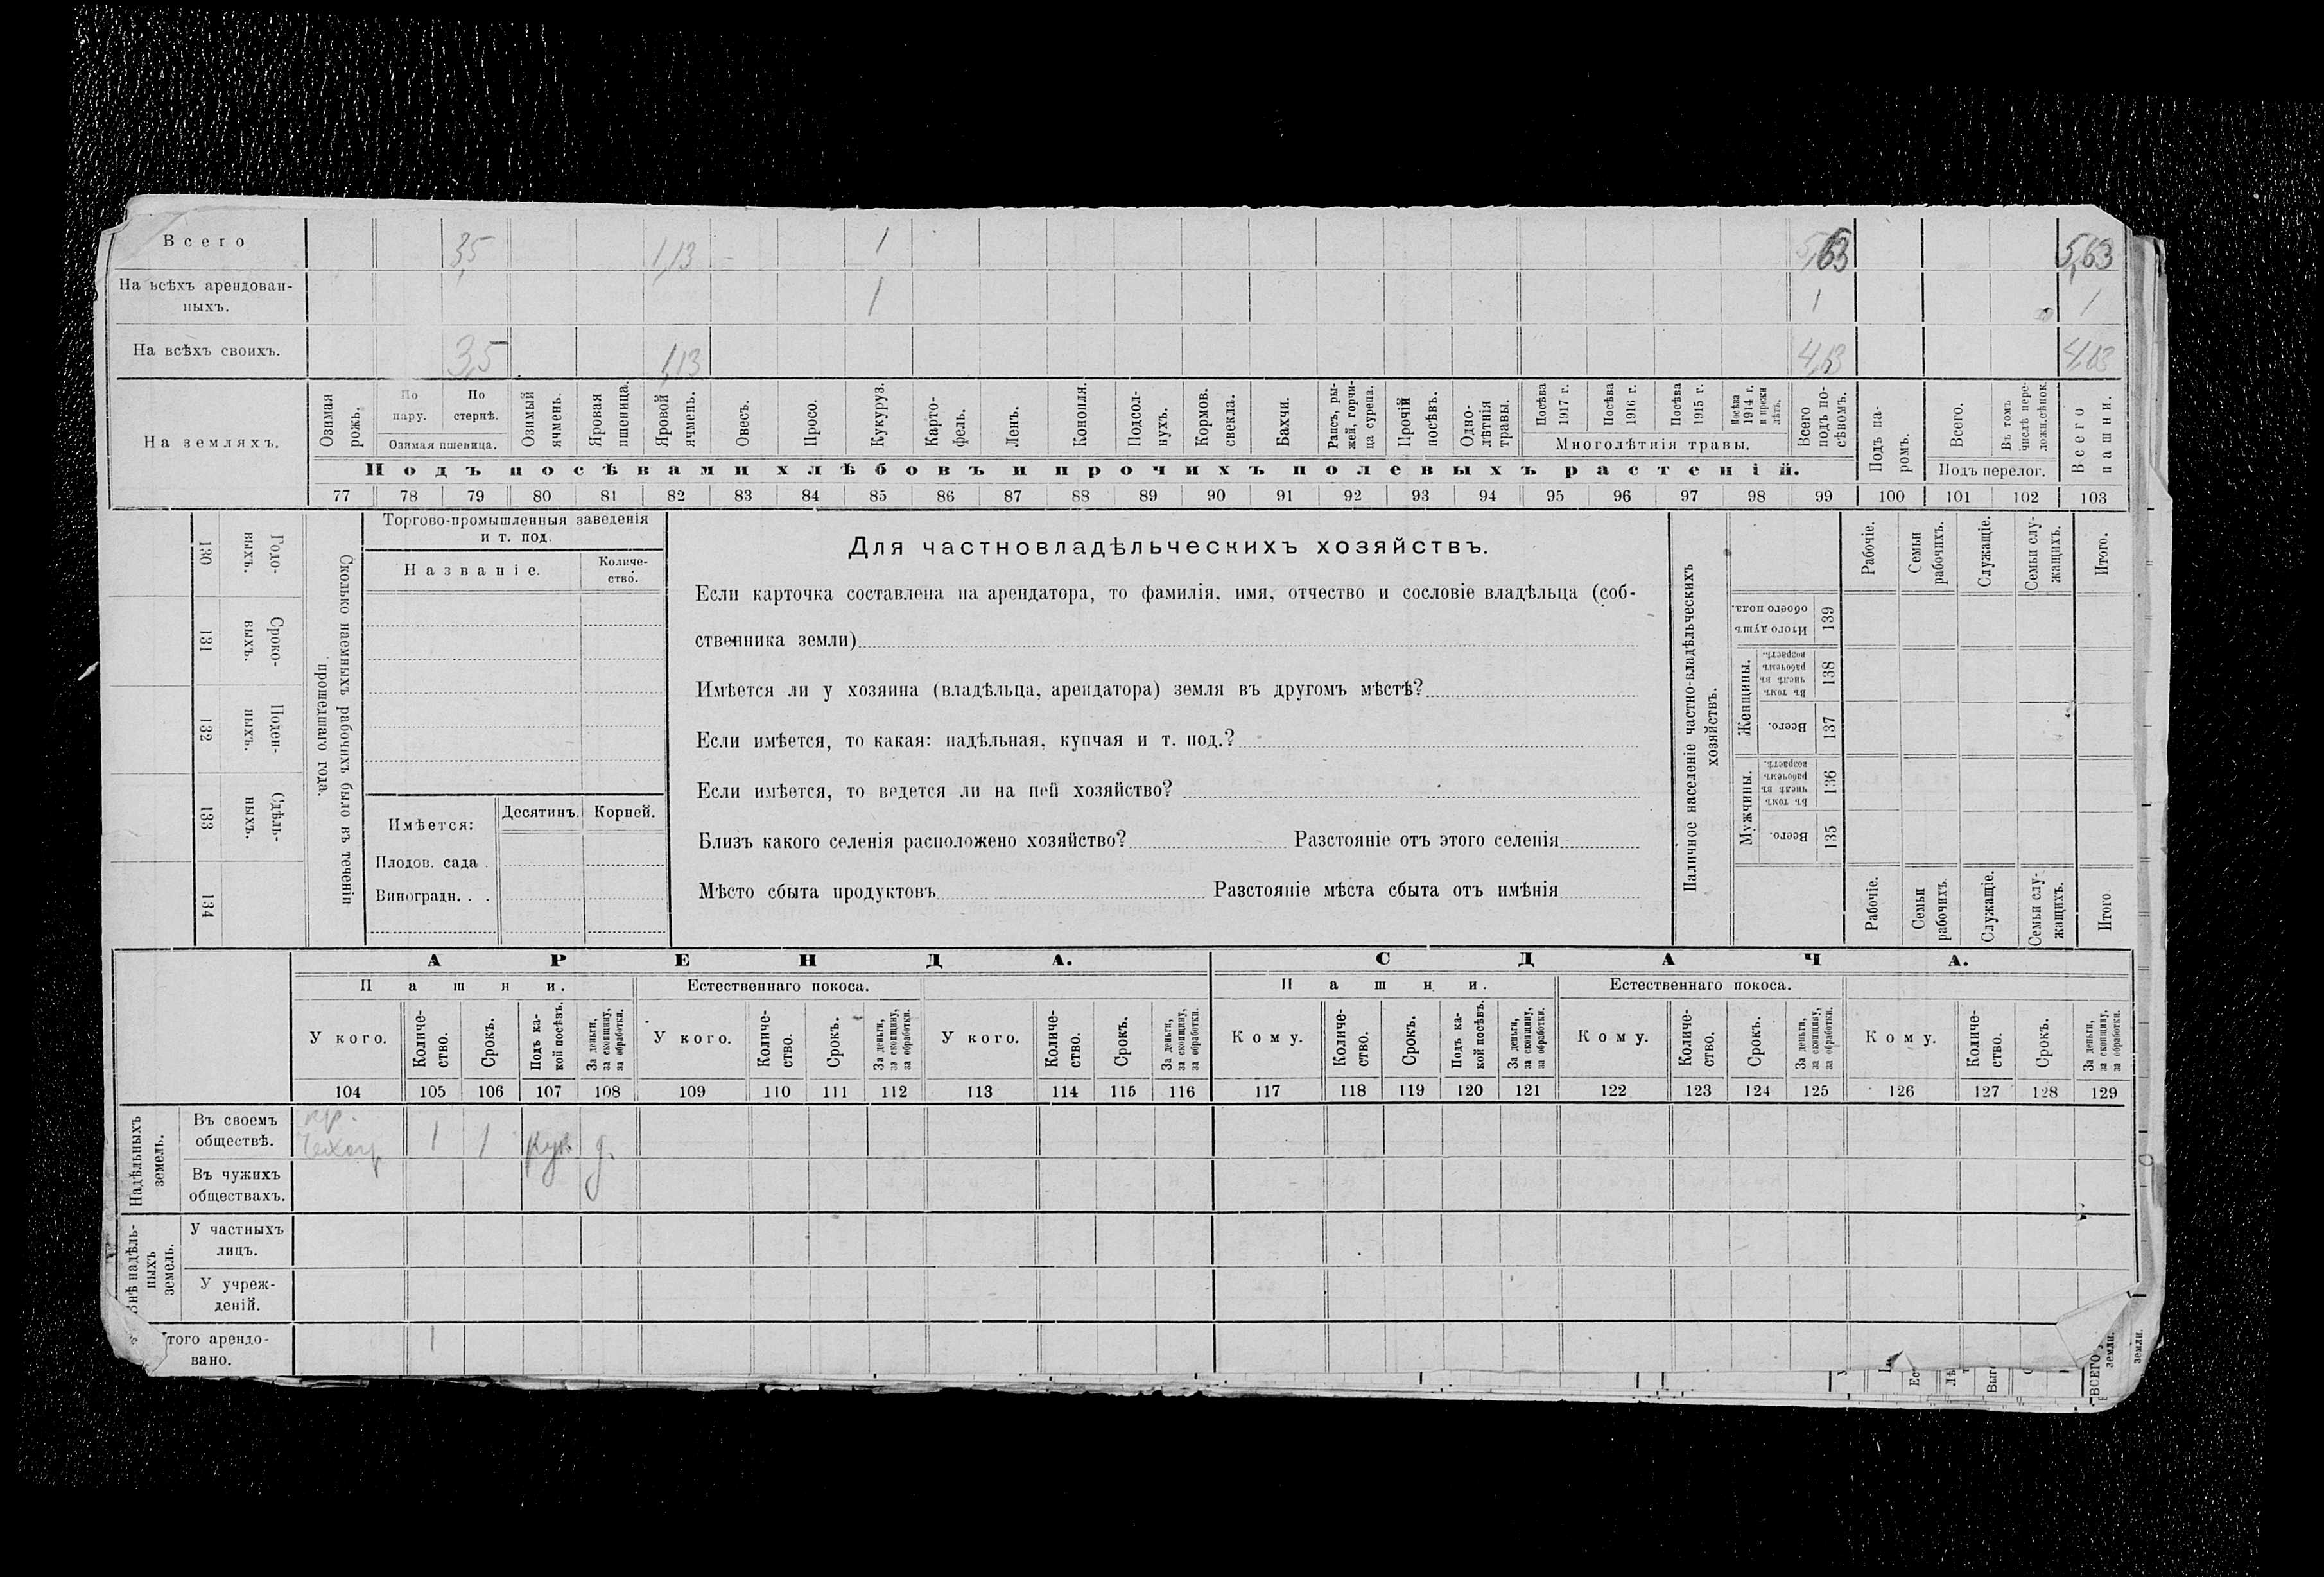 Всего 3,5 1,13 1 5,63 5,63
На всѣхъ арендован-
ныхъ. 1 1 1
На всѣхъ своихъ. 3,5 1,13 4,63 4,63
На земляхъ.
Озимая рожь.
По пару.
По стернѣ.
Озимая пшеница.
Озимый ячмень.
Яровая пшеница.
Яровой ячмень.
Овесъ.
Просо.
Кукуруз.
Карто-
фель.
Ленъ.
Конопля.
Подсол-
нухъ.
Кормов.
свекла.
Бахчи.
Рапсъ, ры-
жей, горчи-
ца сурепа.
Прочій
посѣвъ.
Одно-
лѣтнія
травы.
Посѣва
1917 г.
Посѣва
1916 г.
Посѣва
1915 г.
Посѣва
1914 г.
Многолѣтнія травы.
Всего
подъ по-
сѣвомъ.
Подъ па-
ромъ.
Всего.
Въ томъ
числѣ пере-
Подъ перелог.
Всего
пашни.
Подъ посѣвами хлѣбовъ и прочихъ полевыхъ растеній.
77 78 79 80 81 82 83 84 85 86 87 88 89 90 91 92 93 94 95 96 97 98 99 100 101 102 103
130 Годо-
выхъ.
131 Сроко-
выхъ.
132 Поден-
ныхъ.
133 Сдѣль-
ныхъ.
134
Сколько наемныхъ рабочихъ было въ теченіи
прошедшаго года.
Торгово-промышленныя заведенія
и т. под.
Названіе.
Количе-
ство.
Имѣется:
Десятинъ.
Корней.
Плодов. сада .
Виноградн. . .
Для частновладѣльческихъ хозяйствъ.
Если карточка составлена на арендатора, то фамилія, имя, отчество и сословіе владѣльца (соб-
ственника земли)
Имѣется ли у хозяина (владѣльца, арендатора) земля въ другомъ мѣстѣ?
Если имѣется, то какая: надѣльная, купчая и т. под.?
Если имѣется, то ведется ли на ней хозяйство?
Близъ какого селенія расположено хозяйство? Разстояніе отъ этого селенія
Мѣсто сбыта продуктовъ Разстояніе мѣста сбыта отъ имѣнія
Наличное населеніе частно-владѣльческихъ
хозяйствъ.
Рабочіе.
Семьи
рабочихъ.
Служащіе.
Семьи слу-
жащихъ.
Итого.
Итого душъ
обоего пола.
139
Женщины.
Въ томъ
числѣ въ
рабочемъ
возрастѣ.
138
Всего.
137
Мужчины.
Въ томъ
числѣ въ
рабочемъ
возрастѣ.
136
Всего.
135
Рабочіе.
Семьи
рабочихъ.
Служащіе.
Семьи слу-
жащихъ.
Итого
АРЕНДА. СДАЧА.
Пашни. Естественнаго покоса. Пашни. Естественнаго покоса.
У кого.
Количе-
ство.
Срокъ.
Подъ ка-
кой посѣвъ.
За деньги,
за скопщину,
за обработки.
У кого.
Количе-
ство.
Срокъ.
За деньги,
за скопщину,
за обработки.
У кого.
Количе-
ство.
Срокъ.
За деньги,
за скопщину,
за обработки.
Кому.
Количе-
ство.
Срокъ.
Подъ ка-
кой посѣвъ.
За деньги,
за скопщину,
за обработки.
Кому.
Количе-
ство.
Срокъ.
За деньги,
за скопщину,
за обработки.
Кому.
Количе-
ство.
Срокъ.
За деньги,
за скопщину,
за обработки.
104 105 106 107 108 109 110 111 112 113 114 115 116 117 118 119 120 121 122 123 124 125 126 127 128 129
Надѣльныхъ
земель.
Въ своемъ
обществѣ. 1 1 кук. д.
Въ чужихъ
обществахъ.
Внѣ надѣль-
ныхъ
земель.
У частныхъ
лицъ.
У учреж-
деній.
Итого арендо-
вано. 1
ВСЕГО
земли.
земли.